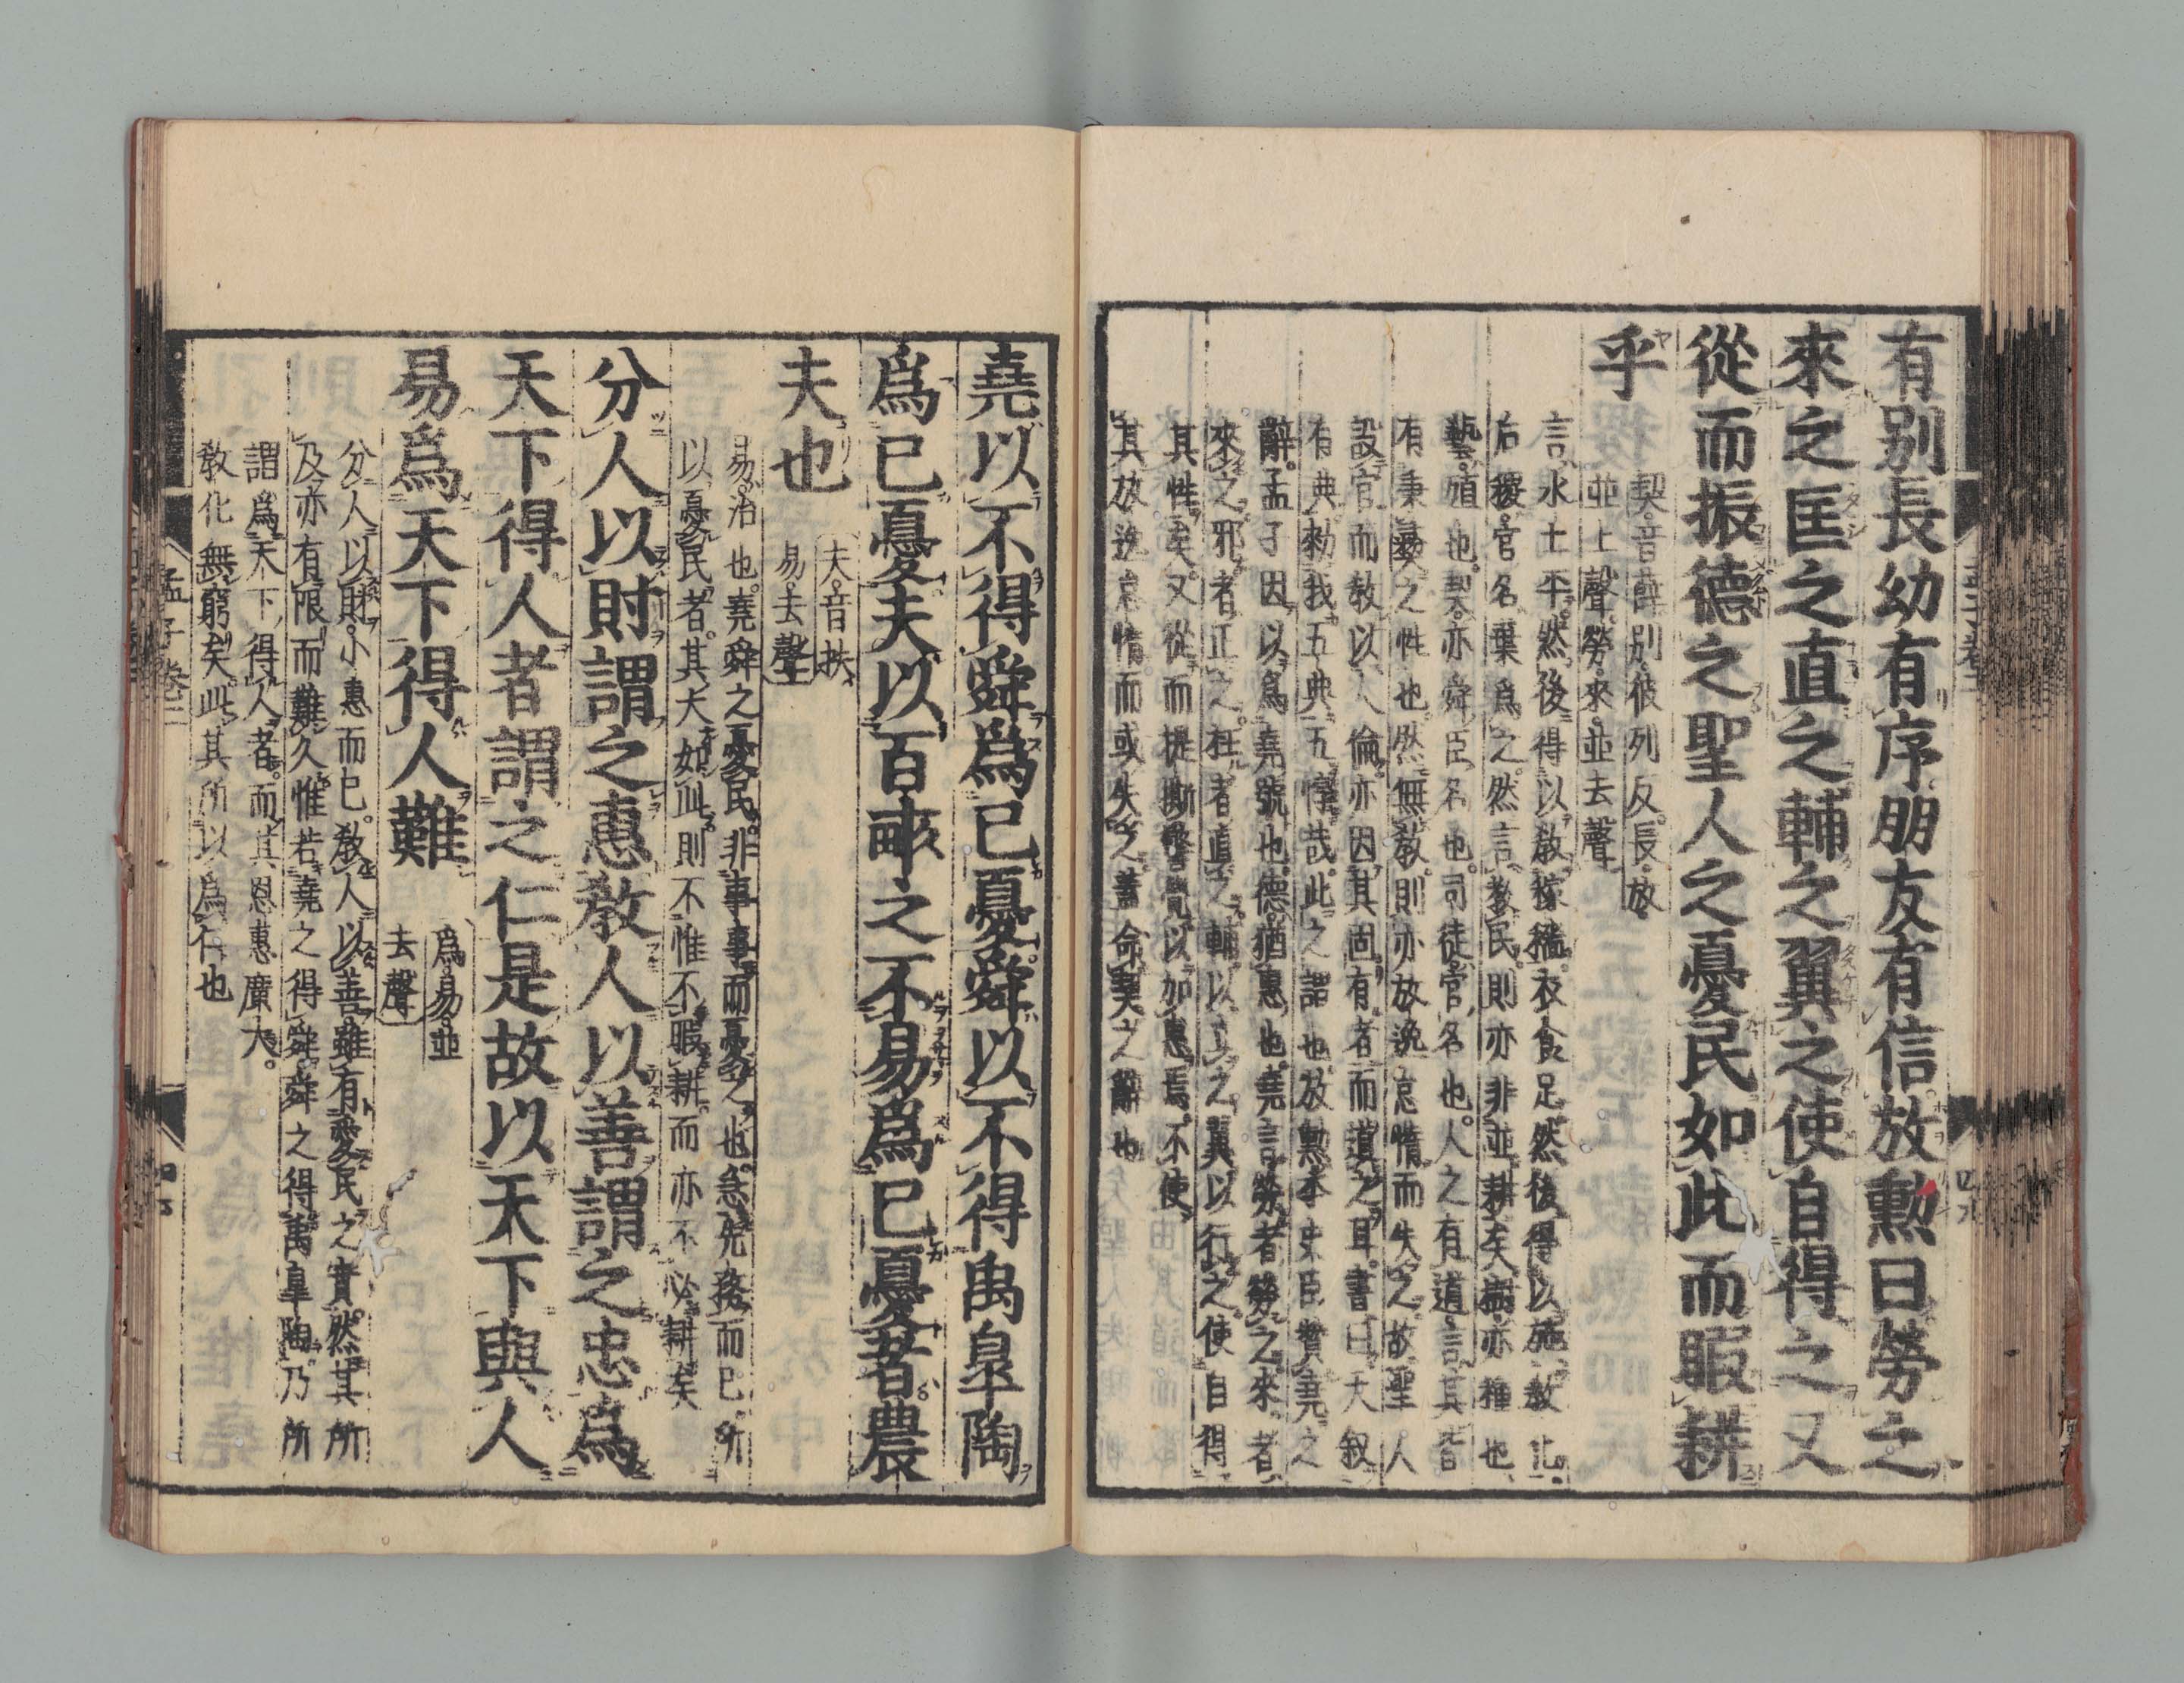 有別長幼有序朋友有信放勳曰勞之
來之匡之直之輔之翼之使自得之又
從而振德之聖人之憂民如此而暇耕
乎
契音薛別彼列反長放
並上聲勞來並去聲
言水土平然後得以教稼穡衣食足然後得以施教化
后稷官名棄爲之然言教民則亦非並耕矣樹亦種也
藝殖也契亦舜臣名也司徒官名也人之有道言其皆
有秉彝之性也然無教則亦放逸怠惰而失之故聖人
設官而教以人倫亦因其固有者而道之耳書曰天叙
有典勑我五典五惇哉此之謂也放勳本史臣贊堯之
辭孟子因以爲堯號也德猶惠也堯言勞者勞之來者
來之邪者正之枉者直之輔以立之翼以行之使自得
其性矣又從而提撕警覺以加惠焉不使
其放逸怠惰而或失之蓋命契之辭也
堯以不得舜爲已憂舜以不得禹皐陶
爲已憂夫以百畝之不易爲已憂者農
夫也
夫音扶
易去聲
易治也堯舜之憂民非事事而憂之也急先務而已所
以憂民者其大如此則不惟不暇耕而亦不必耕矣
分人以財謂之惠教人以善謂之忠爲
天下得人者謂之仁是故以天下與人
易爲天下得人難
爲易並
去聲
分人以財小惠而已教人以善雖有愛民之實然其所
及亦有限而難久惟若堯之得舜舜之得禹皐陶乃所
謂爲天下得人者而其恩惠廣大
教化無窮矣此其所以爲仁也
孟子卷三